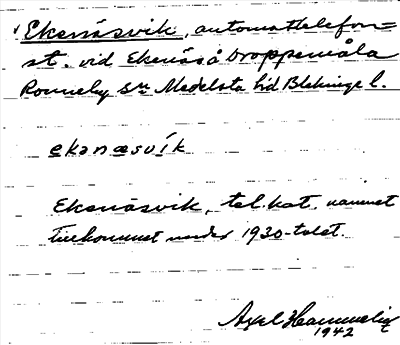 Ekenäsvik, automattelefon=
st. vid Ekenäs å Droppemåla
Ronneby sn Medelsta hd Blekinge l.
ekanæsvík
Ekenäsvik, tel.kat. namnet
tillkommet under 1920-talet.
Axel
1942